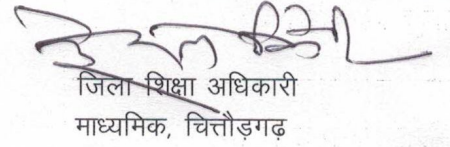 जिला शिक्षा अधिकारी
माध्यमिक, चित्तौड़गढ़